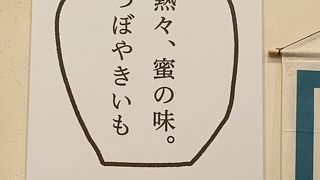 熱々、蜜の味。
つぼやきいも